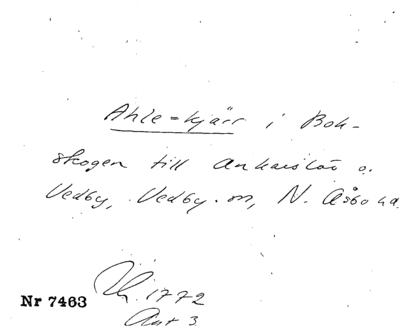 Ahle-kjärr i Bok-
skogen till Ankarslöv o.
Vedby, Vedby sn, N. Åsbo hd.
1772
Nr 7463
Akt 3